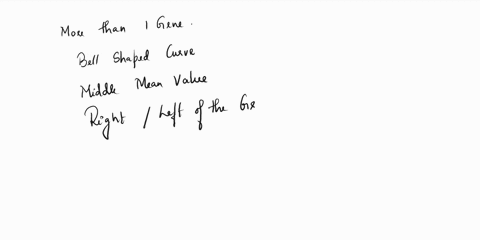 More than 1 Gene.
Bell Shaped Curve
Middle Mean Value
Right / Left of the